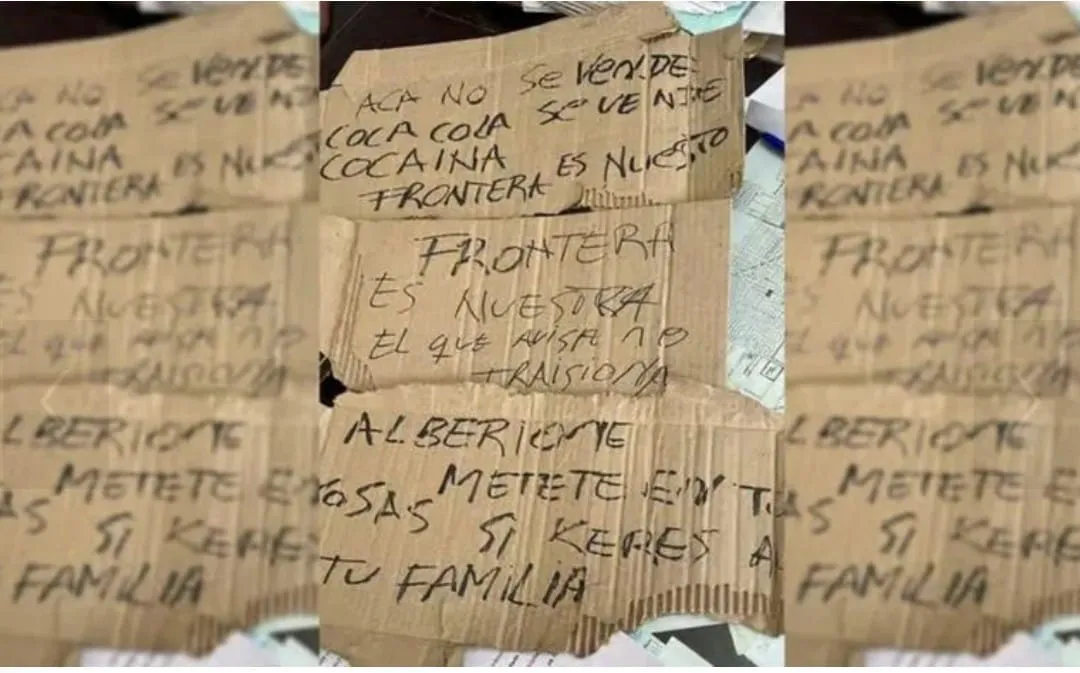 ACA NO SE VENDE
COCA COLA SE VENDE
COCAINA
FRONTERA ES NUESTO
FRONTERA
ES NUESTRA
EL QUE AVISA NO
TRAISIONA
ALBERIONE
METETE EN TU
COSAS SI KERES A
TU FAMILIA